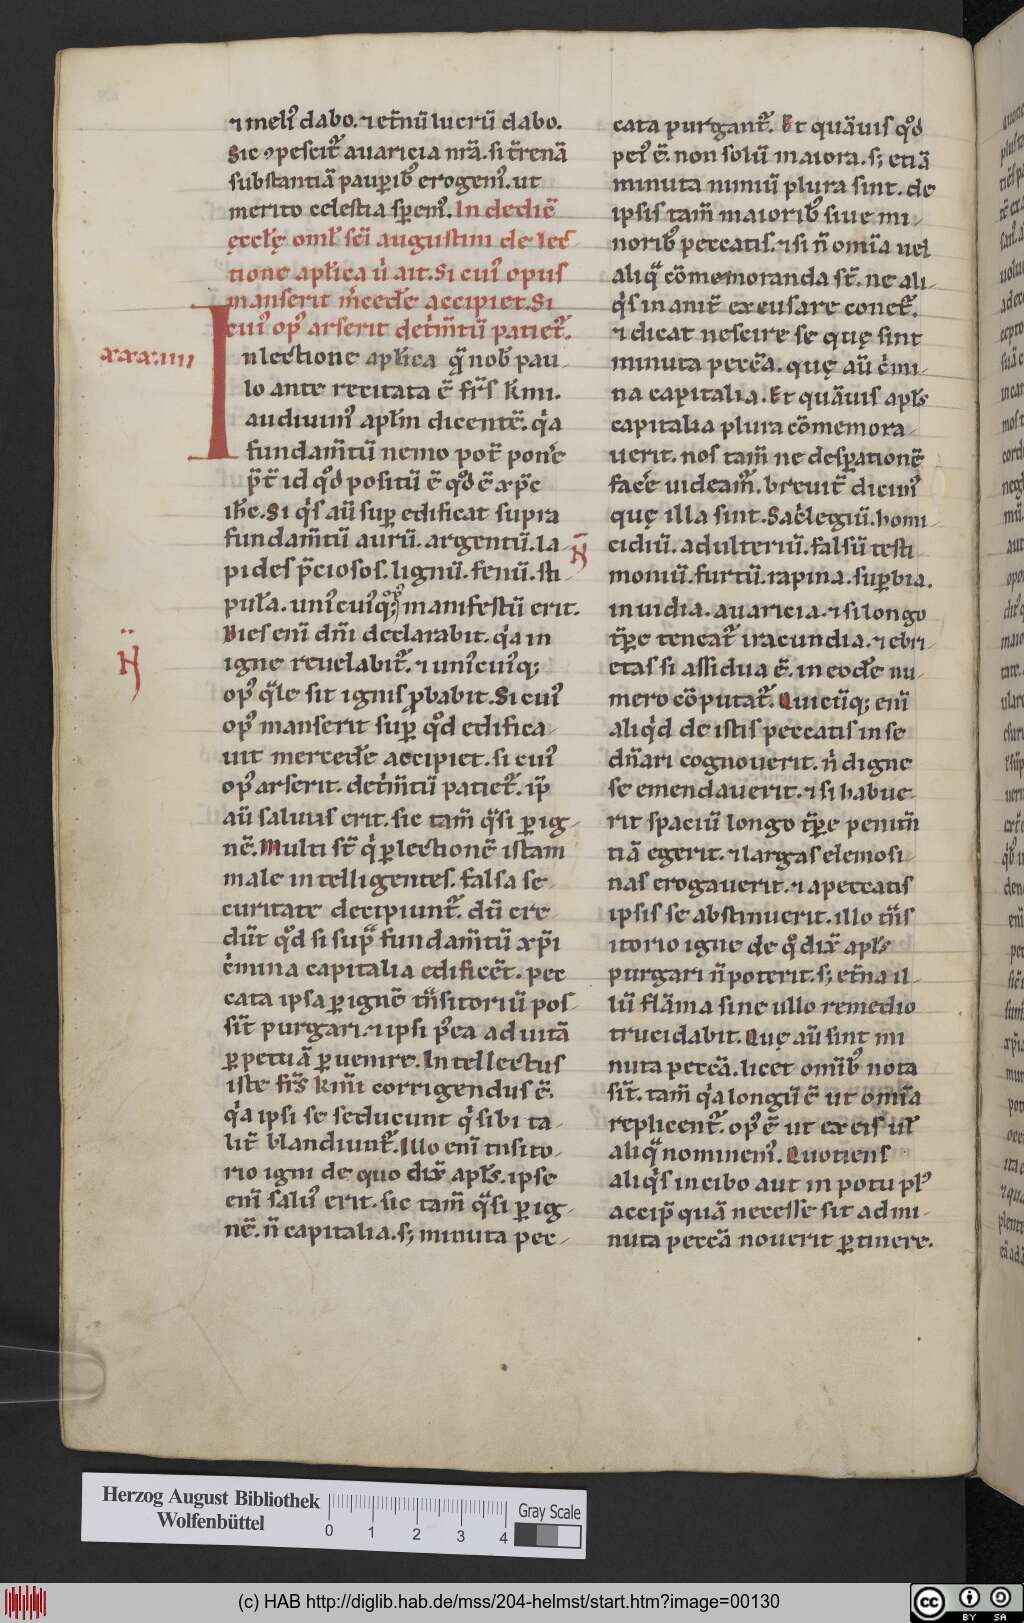 ⁊ meliꝰ dabo. ⁊ et̄nū lucrū dabo.
Sic ꝯpescit᷑ auaricia nr̄a. si t̄renā
substantiā paup̱ib; erogemꝰ. ut
merito celestia sp̱emꝰ. In dedic̄
ęccƚę omƚ sc̄i augustini de lec
tione apƚica ú ait. Si cuiꝰ opus
manserit m̓cedē accipiet. Si
cuiꝰ opꝰ arserit det̓m̄tū patiet᷑.
xxx.iiii
In lectione apƚica qͣ nob̄ pau
lo ante recitata ē fr̄s km̄i.
audiuimꝰ apƚm dicentē. qͥa
fundam̄tū nemo pot̄ pon̓e
p̄t̄ id qͦd positū ē qͦd ē xp̄c
ih̄c. Si qͥs aū sup̱ edificat supra
fundam̄tū aurū. argentū. la
pides p̄ciosos. lignū. fenū. sti
puƚa. uniꝰcuiꝰq; opꝰ manifestū erit.
Dies enī dn̄i declarabit. qͥa in
igne reuelabit᷑. ⁊ uniꝰcuiꝰq;
opꝰ qͣle sit ignis ꝓbabit. Si cuiꝰ
opꝰ manserit sup̱ qͦd edifica
uit mercedē accipiet. si cuiꝰ
opꝰ arserit. det̓m̄tū patiet᷑. ip̄
aū saluus erit. sic tam̄ qͣsi ꝑ ig
nē. Multi st̄ qͥ ꝑ lectionē istam
male intelligentes. falsa se
curitate decipiunt᷑. dū cre
dūt qͦd si supͣ fundam̄tū xp̄i
c̓mina capitalia edificēt. pec
cata ipsa ꝑ ignē tͣnsitoriū pos
sīt purgari. ⁊ ipsi p̄ea ad uitā
ꝑpetuā ꝑuenire. Intellectus
iste fr̄s km̄i corrigendus ē.
qͥa ipsi se seducunt qͥ sibi ta
lit̄ blandiunt᷑. Illo enī tnsito
rio igni de quo dix̄ apƚs. ipse
enī saluꝰ erit. sic tam̄ qͣsi ꝑ ig
nē. n̄ capitalia. s; minuta pec
cata purgant᷑. Et quāuis qͦd
peiꝰ ē. non solū maiora. s; etiā
minuta nimiū plura sint. de
ipsis tam̄ maiorib; siue mi
norib; peccatis. ⁊ si n̄ omīa uel
aliqͣ cōmemoranda st̄. ne ali
qͥs inanit̄ excusare conet᷑.
⁊ dicat nescire se quę sint
minuta peccā. quę aū c̓mi
na capitalia. Et quāuis apƚs
capitalia plura cōmemora
uerit. nos tam̄ ne desp̱ationē
fac̓e uideam᷑. breuit̄ dicimꝰ
quę illa sint. Sac̓legiū. homi
cidiū. adulteriū. falsū testi
moniū. furtū. rapina. sup̱bia.
inuidia. auaricia. ⁊ si longo
tp̄re teneat᷑ iracundia. ⁊ ebri
etas si assidua ē. in eodē nu
mero cōputat᷑. Quicūq; enī
aliqͥd de istis peccatis in se
dn̄ari cognouerit. n̄ digne
se emendauerit. ⁊ si habue
rit spaciū longo tp̄re penitn̄
tiā egerit. ⁊ largas elemosi
nas erogauerit. ⁊ a peccatis
ipsis se abstinuerit. illo tͣns
itorio igne de qͦ dix̄ apƚs
purgari n̄ poterit. s; et̄na il
lū flāma sine ullo remedio
trucidabit. Quę aū sint mi
nuta peccā. licet omīb; nota
sīt. tam̄ qͥa longū ē ut omīa
replicent᷑. opꝰ ē ut ex eis uƚ
aliqͣ nominemꝰ. Quotiens
aliqͥs in cibo aut in potu plꝰ
accip̱ quā necesse sit ad mi
nuta peccā nouerit ꝑtinere.
Herzog August Bibliothek
Wolfenbüttel
0 1 2 3 4
Gray Scale
(c) HAB http://diglib.hab.de/mss/204-helmst/start.htm?image=00130
cc BY SA